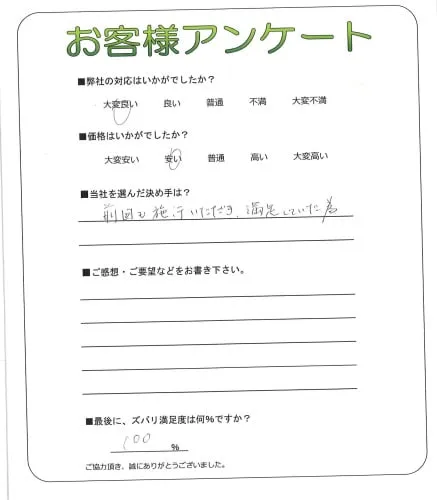 お客様アンケート
■弊社の対応はいかがでしたか?
大変良い 良い 普通 不満 大変不満
■価格はいかがでしたか?
大変安い 安い 普通 高い 大変高い
■当社を選んだ決め手は?
前回も施行いただき、満足していた為
■ご感想・ご要望などをお書き下さい。
■最後に、ズバリ満足度は何%ですか?
100 %
ご協力頂き、誠にありがとうございました。